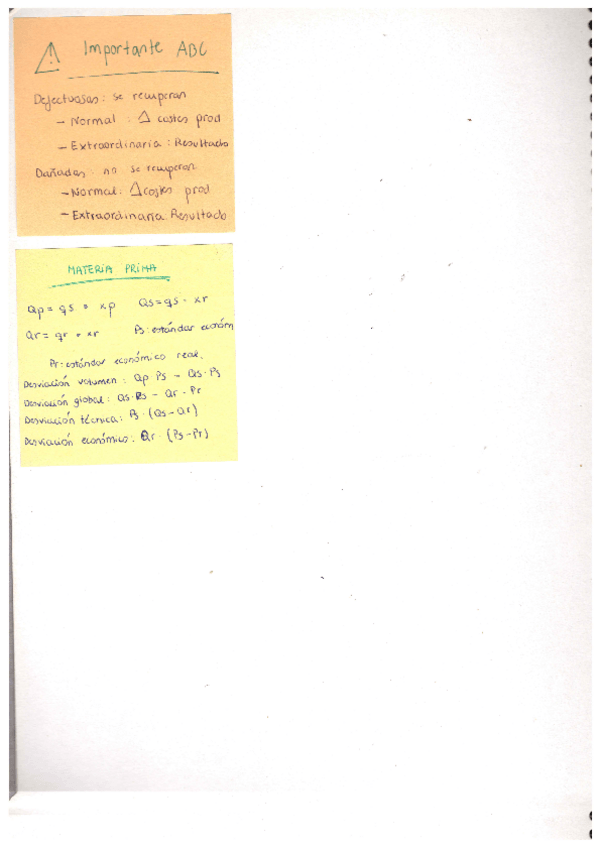 ⚠ Importante ABC
Defectuosas: se recuperan
- Normal : Δ costes prod
- Extraordinaria : Resultado
Dañadas: no se recuperan
- Normal: Δ costes prod
- Extraordinaria: Resultado
MATERIA PRIMA
Qp = qs · xp Qs = qs · xr
Qr = qr · xr Ps: estándar económ
Pr: estándar económico real.
Desviación volumen : Qp · Ps - Qs · Ps
Desviación global : Qs · Ps - Qr · Pr
Desviación técnica : Ps · (Qs - Qr)
Desviación económico : Qr · (Ps - Pr)